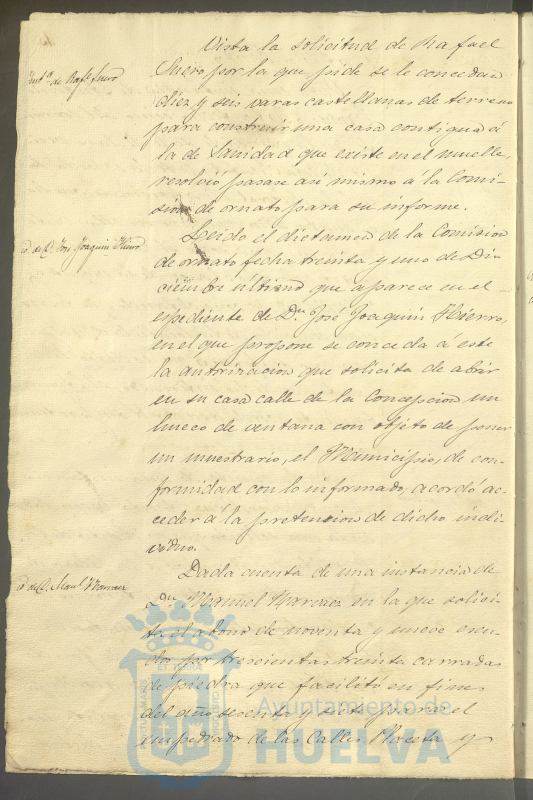 Vista la solicitud de Rafael
Suero por la que pide se le concedan
diez y seis varas castellanas de terreno
para construir una casa contigua á
la de Sanidad que existe en el muelle,
resolvió pasase asi mismo á la Comi-
sion de ornato para su informe.
Leido el dictamen de la Comision
de ornato fecha treinta y uno de Di-
ciembre último que aparece en el
espediente de Dn. José Joaquin Hierro,
en el que propone se conceda á este
la autorizacion que solicita de abrir
en su casa calle de la Concepcion un
hueco de ventana con objeto de poner
un muestrario, el Municipio, de con-
formidad con lo informado, acordó ac-
ceder á la pretension de dicho indi-
viduo.
Dada cuenta de una instancia de
Dn. Manuel Narvaez en la que solici-
ta el abono de noventa y nueve escu-
dos por trescientas treinta carradas
de piedra que facilitó en fines
del año sesenta y siete para el
empedrado de las Calles Placeta y
de Rafl. Suero
de D. José Joaquin Hierro
de D. Manl. Narvaez
Ayuntamiento de
HUELVA